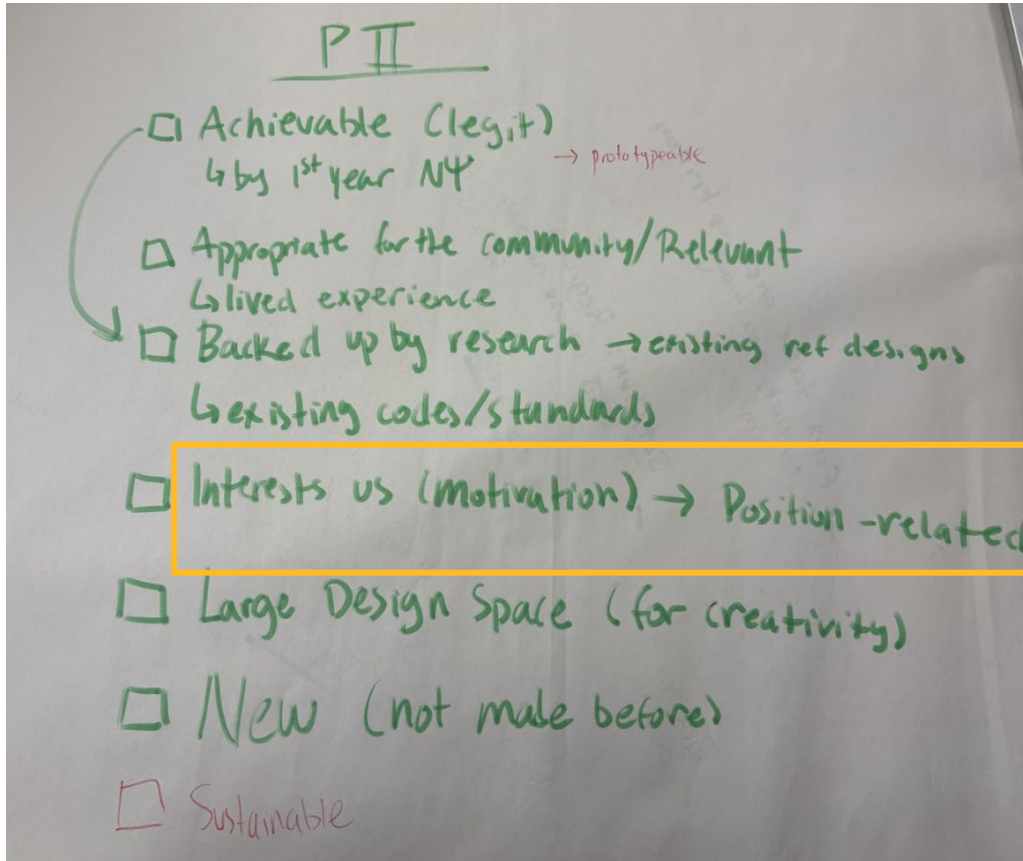 P II
☐ Achievable (legit)
→ prototypeable
↳ by 1st year NΨ
☐ Appropriate for the community/Relevant
↳ lived experience
☐ Backed up by research → existing ref designs
↳ existing codes/standards
☐ Interests us (motivation) → Position-related
☐ Large Design Space (for creativity)
☐ New (not made before)
☐ Sustainable